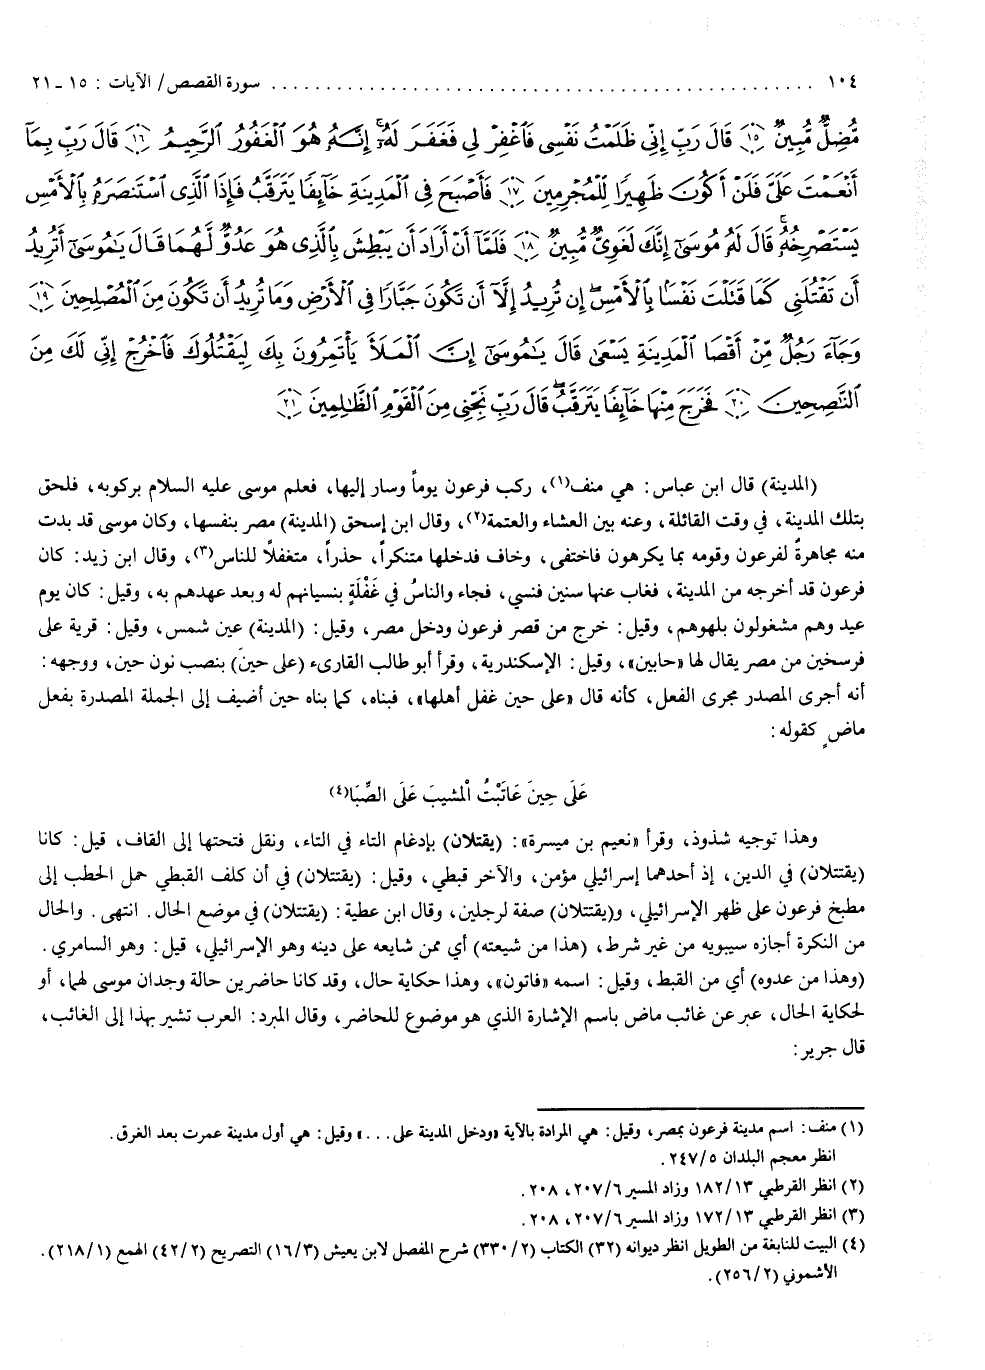 ١٠٤ ........................................ سورة القصص/ الآيات : ١٥ ـ ٢١
مُّضِلٌّ مُّبِينٌ ﴿١٥﴾ قَالَ رَبِّ إِنِّي ظَلَمْتُ نَفْسِي فَاغْفِرْ لِي فَغَفَرَ لَهُۥٓ إِنَّهُ هُوَ الْغَفُورُ الرَّحِيمُ ﴿١٦﴾ قَالَ رَبِّ بِمَآ
أَنْعَمْتَ عَلَيَّ فَلَنْ أَكُونَ ظَهِيرًا لِّلْمُجْرِمِينَ ﴿١٧﴾ فَأَصْبَحَ فِي الْمَدِينَةِ خَآئِفًا يَتَرَقَّبُ فَإِذَا الَّذِي اسْتَنصَرَهُ بِالْأَمْسِ
يَسْتَصْرِخُهُۥ قَالَ لَهُ مُوسَىٰٓ إِنَّكَ لَغَوِيٌّ مُّبِينٌ ﴿١٨﴾ فَلَمَّآ أَنْ أَرَادَ أَن يَبْطِشَ بِالَّذِي هُوَ عَدُوٌّ لَّهُمَا قَالَ يَٰمُوسَىٰٓ أَتُرِيدُ
أَن تَقْتُلَنِي كَمَا قَتَلْتَ نَفْسًا بِالْأَمْسِ إِن تُرِيدُ إِلَّآ أَن تَكُونَ جَبَّارًا فِي الْأَرْضِ وَمَا تُرِيدُ أَن تَكُونَ مِنَ الْمُصْلِحِينَ ﴿١٩﴾
وَجَآءَ رَجُلٌ مِّنْ أَقْصَا الْمَدِينَةِ يَسْعَىٰ قَالَ يَٰمُوسَىٰٓ إِنَّ الْمَلَأَ يَأْتَمِرُونَ بِكَ لِيَقْتُلُوكَ فَاخْرُجْ إِنِّي لَكَ مِنَ
النَّٰصِحِينَ ﴿٢٠﴾ فَخَرَجَ مِنْهَا خَآئِفًا يَتَرَقَّبُ قَالَ رَبِّ نَجِّنِي مِنَ الْقَوْمِ الظَّٰلِمِينَ ﴿٢١﴾
(المدينة) قال ابن عباس : هي منف(١)، ركب فرعون يوماً وسار إليها، فعلم موسى عليه السلام بركوبه، فلحق
بتلك المدينة، في وقت القائلة، وعنه بين العشاء والعتمة(٢)، وقال ابن إسحق (المدينة) مصر بنفسها، وكان موسى قد بدت
منه مجاهرةٌ لفرعون وقومه بما يكرهون فاختفى، وخاف فدخلها متنكراً، حذراً، متغفلاً للناس(٣)، وقال ابن زيد : كان
فرعون قد أخرجه من المدينة، فغاب عنها سنين فنسي، فجاء والناسُ في غَفْلَةٍ بنسيانهم له وبعد عهدهم به، وقيل : كان يوم
عيد وهم مشغولون بلهوهم، وقيل : خرج من قصر فرعون ودخل مصر، وقيل : (المدينة) عين شمس، وقيل : قرية على
فرسخين من مصر يقال لها «حابين»، وقيل : الإسكندرية، وقرأ أبو طالب القارىء (على حينَ) بنصب نون حين، ووجهه :
أنه أجرى المصدر مجرى الفعل، كأنه قال «على حين غفل أهلها»، فبناه، كما بناه حين أضيف إلى الجملة المصدرة بفعل
ماضٍ كقوله :
عَلَى حِينَ عَاتَبْتُ الْمَشِيبَ عَلَى الصِّبَا(٤)
وهذا توجيه شذوذ، وقرأ «نعيم بن ميسرة» : (يقتلان) بإدغام التاء في التاء، ونقل فتحتها إلى القاف، قيل : كانا
(يقتتلان) في الدين، إذ أحدهما إسرائيلي مؤمن، والآخر قبطي، وقيل : (يقتتلان) في أن كلف القبطي حمل الحطب إلى
مطبخ فرعون على ظهر الإسرائيلي، و(يقتتلان) صفة لرجلين، وقال ابن عطية : (يقتتلان) في موضع الحال . انتهى . والحال
من النكرة أجازه سيبويه من غير شرط، (هذا من شيعته) أي ممن شايعه على دينه وهو الإسرائيلي، قيل : وهو السامري .
(وهذا من عدوه) أي من القبط، وقيل : اسمه «فاتون»، وهذا حكاية حال، وقد كانا حاضرين حالة وجدان موسى لهما، أو
لحكاية الحال، عبر عن غائب ماض باسم الإشارة الذي هو موضوع للحاضر، وقال المبرد : العرب تشير بهذا إلى الغائب،
قال جرير :
(١) منف : اسم مدينة فرعون بمصر، وقيل : هي المرادة بالآية «ودخل المدينة على . . .» وقيل : هي أول مدينة عمرت بعد الغرق .
انظر معجم البلدان ٢٤٧/٥ .
(٢) انظر القرطبي ١٨٢/١٣ وزاد المسير ٢٠٧/٦، ٢٠٨ .
(٣) انظر القرطبي ١٧٢/١٣ وزاد المسير ٢٠٧/٦، ٢٠٨ .
(٤) البيت للنابغة من الطويل انظر ديوانه (٣٢) الكتاب (٣٣٠/٢) شرح المفصل لابن يعيش (١٦/٣) التصريح (٤٢/٢) الهمع (٢١٨/١) .
الأشموني (٢٥٦/٢) .